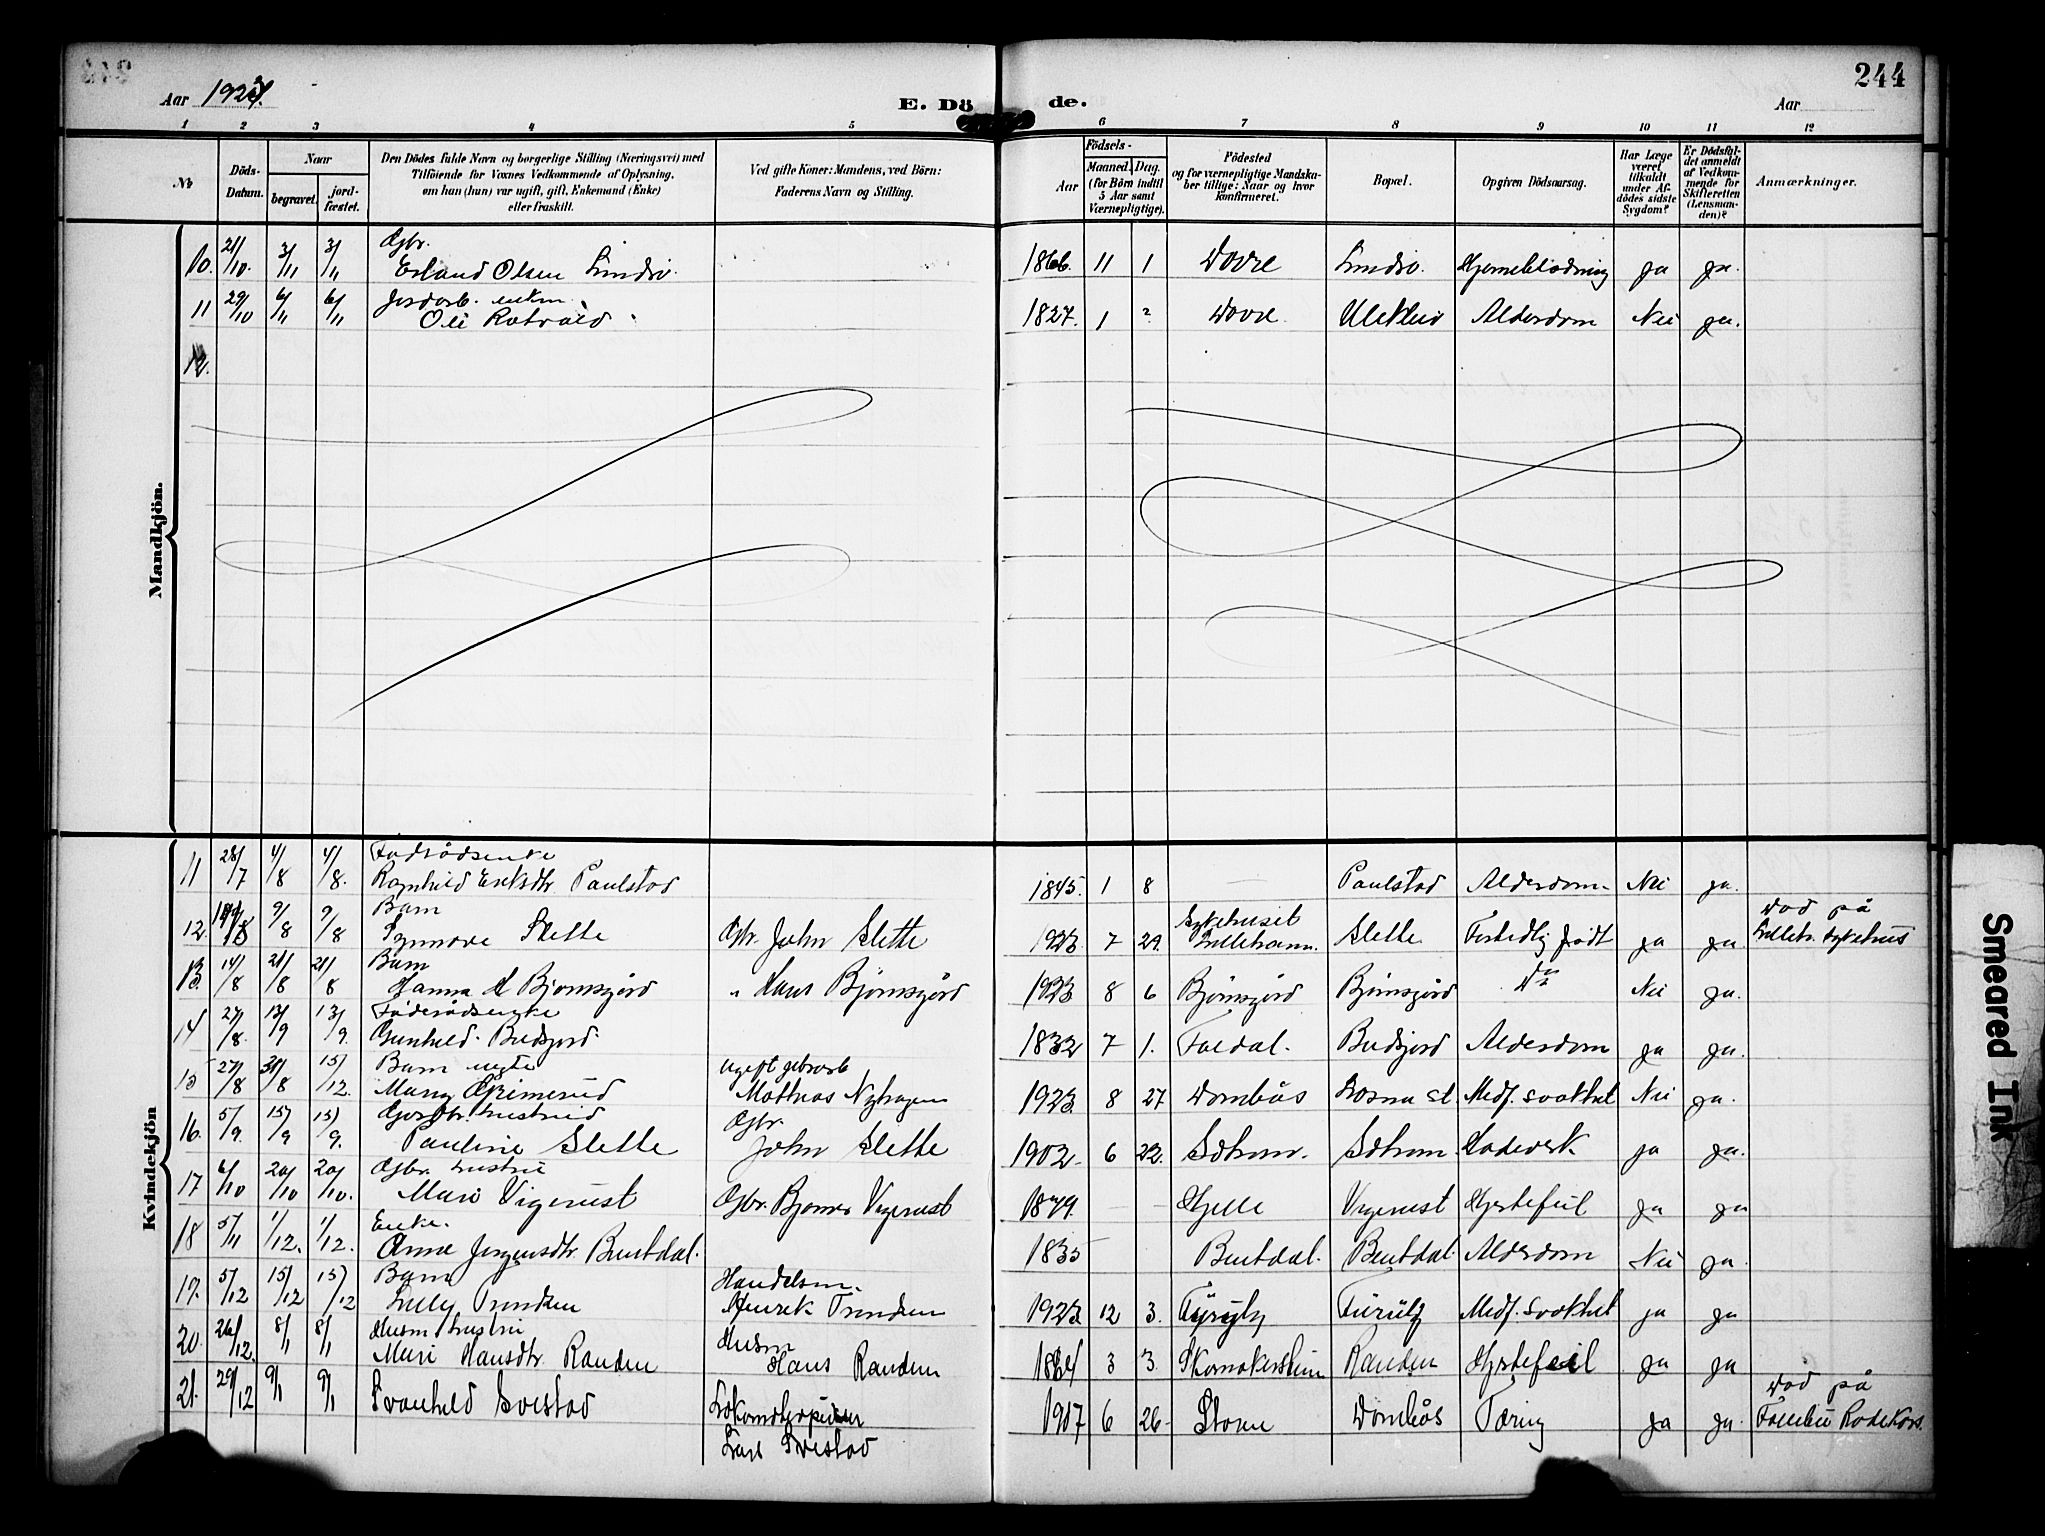 244
Aar 1923.
E. Dö de.
Aar
1 2 3 4 5 6 7 8 9 10 11 12
No
Döds-Datum.
Naar
begravet.
jord-fæstet.
Den Dödes fulde Navn og borgerlige Stilling (Næringsvei) med
Tilföiende for Voxnes Vedkommende af Oplysning,
om han (hun) var ugift, gift, Enkemand (Enke)
eller fraskilt.
Ved gifte Koner: Mandens, ved Börn:
Faderens Navn og Stilling.
Födsels-
Aar
Maaned. Dag.
(for Börn indtil
5 Aar samt
Værnepligtige).
Födested
og for værnepligtige Mandska-
ber tillige: Naar og hvor
konfirmeret.
Bopæl.
Opgiven Dödsaarsag.
Har Læge
været
tilkaldt
under Af-
dödes sidste
Sygdom?
Er Dödsfal-
det anmeldt
af Vedkom-
mende for
Skifteretten
(Lensman-
den)?
Anmærkninger.
Mandkjön.
10. 21/10. 3/11 3/11 Gbr. Erland Olsen Lindsö. 1866. 11 1 Dovre Lindsö. Hjerneblödning ja ja.
11 29/10 6/11 6/11 Jordarb. enkm. Ole Rotvold 1827. 1 2 Dovre. Ulekleiv Alderdom Nei ja.
12.
Kvindekjön
11 28/7 4/8 4/8. Föderådsenke Ragnhild Eriksdtr Paulstad 1845. 1 8 — Paulstad Alderdom. Nei ja.
12. 9/8 9/8 Barn Synnøve Slette Gbr. John Slette 1923. 7 29. Sykehuset Lilleham. Slette Fortidlig født ja ja Död på Lilleh. sykehus
13. 14/8 21/8 21/8 Barn Hanna H Bjørnsgård " Hans Bjørnsgård 1923 8 6 Bjørnsgård Bjørnsgård Do Nei ja.
14 27/8. 13/9 13/9. Föderådsenke Gunhild Budsjord. 1832 7 1. Foldal. Budsjord Alderdom ja ja.
15 27/8 31/8 15/12. Barn uegte Mary Grimerud ugift gbrarb Mathias Nyhagen 1923. 8 27 Dombås Losna st. Medf. svakhet Nei ja.
16. 5/9. 15/9 15/9. Gbr. hustru Pauline Slette Gbr. John Slette 1902. 6 22. ja ja.
17 6/10 20/10 20/10. Gbr. hustru Mari Vigerust Gbr. Bjørner Vigerust 1879. — — Hjelle Vigerust Hjertefeil ja ja
18 5/11 1/12. 1/12. Enke. Anne Jørgensdtr. Bentdal. 1835 Bentdal. Bentdal. Alderdom Nei ja.
19. 5/12 15/12 15/12 Barn Lilly Trondsen Handelsm. Henrik Trondsen 1923 12 3. Furuly Furuly Medf. svakhet ja ja
20. 26/12. 8/1 8/1 Husm. hustru Mari Hansdtr. Randen Husm Hans Randen 1864 3 3. Skomakersteien Randen Hjertefeil ja ja
21. 29/12 9/1 9/1 Svanhild Svestad Lars Svestad 1907 6 26. Støren Dombås Tæring ja ja. Död på Rodekors.
Smeared Ink